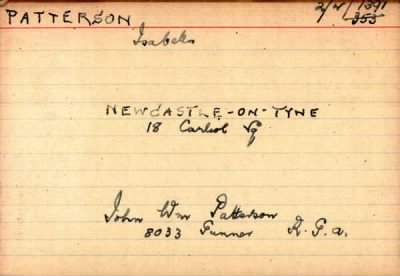 PATTERSON 2/4/1391
Isabella 353
NEWCASTLE-ON-TYNE
18 Carliol Sq
John Wm Patterson
8033 Gunner R.F.a.